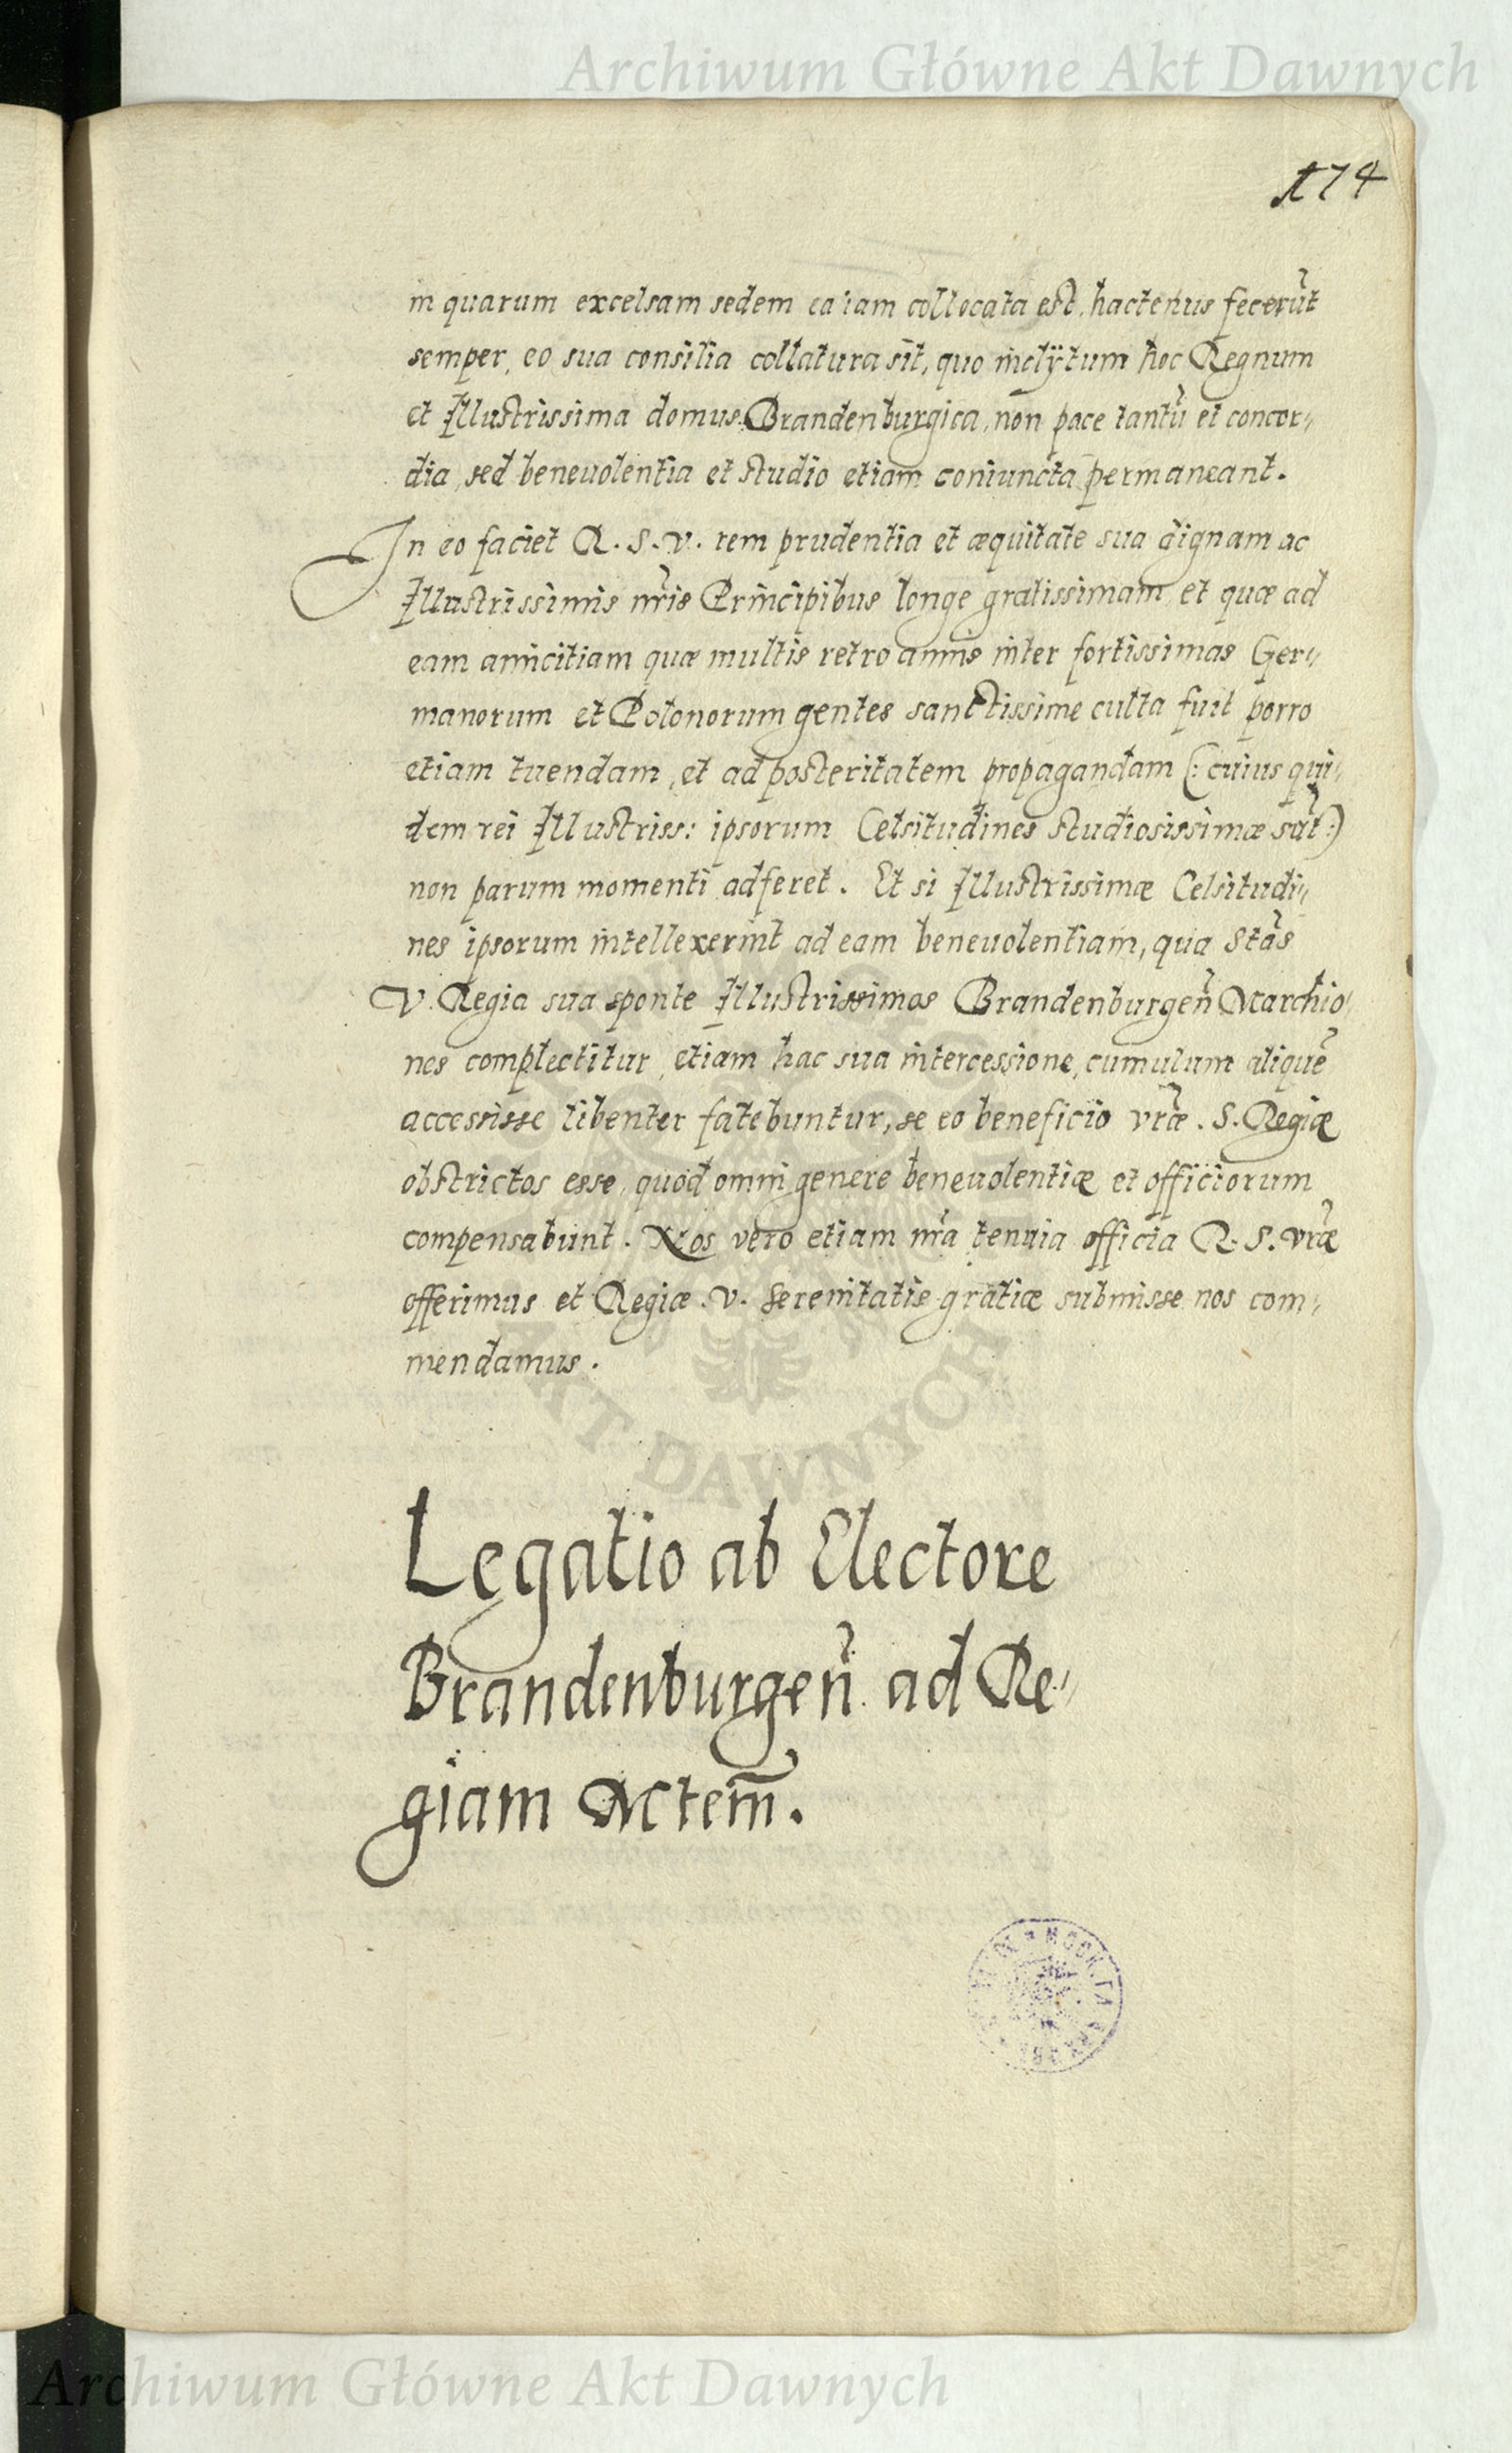 Archiwum Główne Akt Dawnych
174
in quarum excelsam sedem ea iam collocata est, hactenus fecerũt
semper, eo sua consilia collatura sit, quo inclÿtum hoc Regnum
et Illustrissima domus Brandenburgica, non pace tantũ et concor„
dia, sed beneuolentia et studio etiam coniuncta permaneant.
In eo faciet R. S. V. rem prudentia et æquitate sua dignam ac
Illustrissimis nr̃is Principibus longe gratissimam, et quæ ad
eam amicitiam quæ multis retro annis inter fortissimas Ger„
manorum et Polonorum gentes sanctissime culta fuit porro
etiam tuendam, et ad posteritatem propagandam (: cuius qui„
dem rei Illustriss: ipsorum Celsitudines studiosissimæ sũt :)
non parum momenti adferet. Et si Illustrissimæ Celsitudi„
nes ipsorum intellexerint ad eam beneuolentiam, qua Stãs
V. Regia sua sponte Illustrissimos Brandenburgen̄ Marchio„
nes complectitur, etiam hac sua intercessione, cumulum aliquẽ
accessisse libenter fatebuntur, se eo beneficio vr̃æ. S. Regiæ
obstrictos esse, quod omni genere beneuolentiæ et officiorum
compensabunt. Nos vero etiam nr̃a tenuia officia R. S. vr̃æ
offerimus et Regiæ. V. Serenitatis gratiæ submisse nos com„
mendamus.
Legatio ab Electore
Brandenburgen̄ ad Re„
giam Mtem̄.
AKT DAWNYCH
Archiwum Główne Akt Dawnych